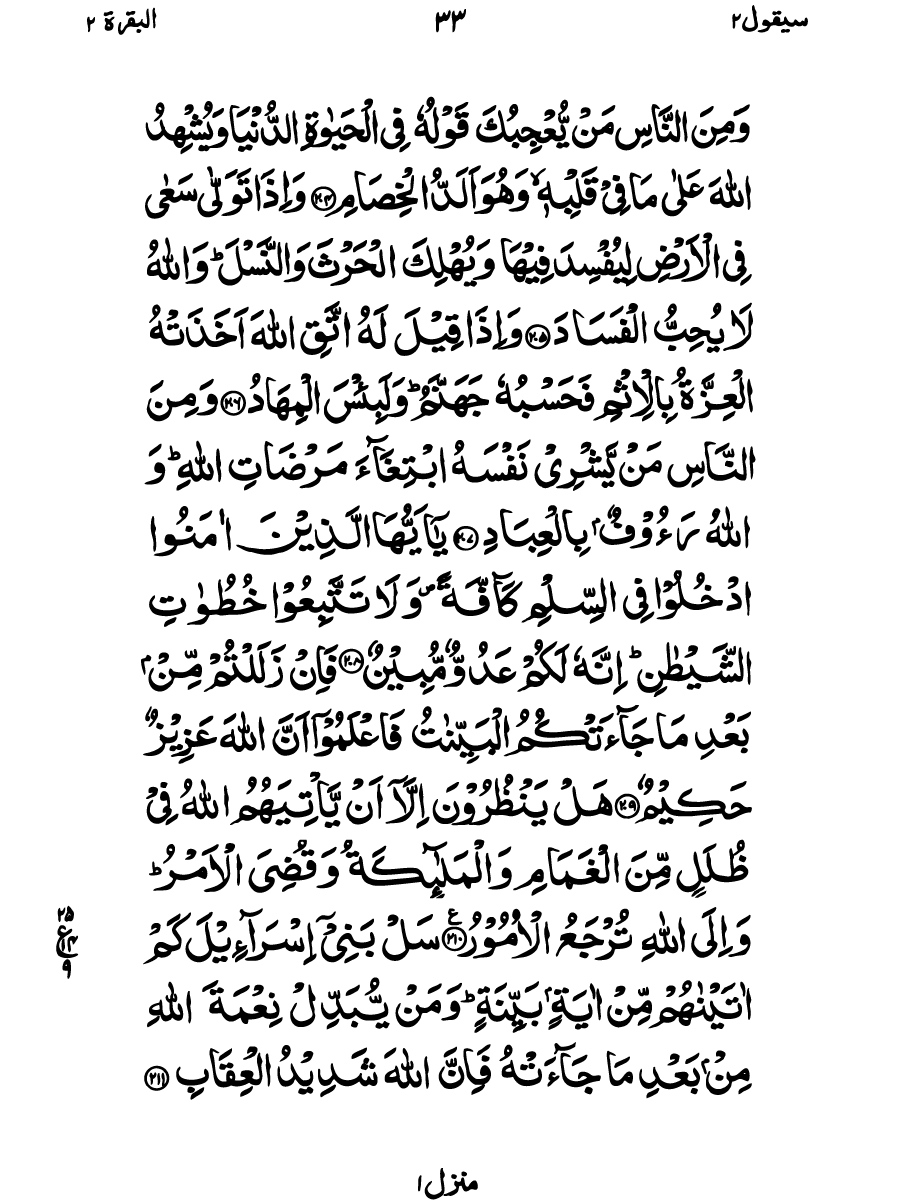 سيقول٢ ٣٣ البقرة ٢
وَمِنَ النَّاسِ مَنْ يُّعْجِبُكَ قَوْلُهٗ فِي الْحَيٰوةِ الدُّنْيَا وَيُشْهِدُ
اللّٰهَ عَلٰى مَا فِيْ قَلْبِهٖ ۙ وَهُوَ اَلَدُّ الْخِصَامِ ﴿٢٠٤﴾ وَاِذَا تَوَلّٰى سَعٰى
فِي الْاَرْضِ لِيُفْسِدَ فِيْهَا وَيُهْلِكَ الْحَرْثَ وَالنَّسْلَ ؕ وَاللّٰهُ
لَا يُحِبُّ الْفَسَادَ ﴿٢٠٥﴾ وَاِذَا قِيْلَ لَهُ اتَّقِ اللّٰهَ اَخَذَتْهُ
الْعِزَّةُ بِالْاِثْمِ فَحَسْبُهٗ جَهَنَّمُ ؕ وَلَبِئْسَ الْمِهَادُ ﴿٢٠٦﴾ وَمِنَ
النَّاسِ مَنْ يَّشْرِيْ نَفْسَهُ ابْتِغَآءَ مَرْضَاتِ اللّٰهِ ؕ وَ
اللّٰهُ رَءُوْفٌۢ بِالْعِبَادِ ﴿٢٠٧﴾ يٰۤاَيُّهَا الَّذِيْنَ اٰمَنُوا
ادْخُلُوْا فِي السِّلْمِ كَآفَّةً ۪ وَلَا تَتَّبِعُوْا خُطُوٰتِ
الشَّيْطٰنِ ؕ اِنَّهٗ لَكُمْ عَدُوٌّ مُّبِيْنٌ ﴿٢٠٨﴾ فَاِنْ زَلَلْتُمْ مِّنْۢ
بَعْدِ مَا جَآءَتْكُمُ الْبَيِّنٰتُ فَاعْلَمُوْۤا اَنَّ اللّٰهَ عَزِيْزٌ
حَكِيْمٌ ﴿٢٠٩﴾ هَلْ يَنْظُرُوْنَ اِلَّاۤ اَنْ يَّاْتِيَهُمُ اللّٰهُ فِيْ
ظُلَلٍ مِّنَ الْغَمَامِ وَالْمَلٰٓئِكَةُ وَقُضِيَ الْاَمْرُ ؕ
وَاِلَى اللّٰهِ تُرْجَعُ الْاُمُوْرُ ﴿٢١٠﴾ ع سَلْ بَنِيْۤ اِسْرَآءِيْلَ كَمْ
٢٥
ع
١٤
٩
اٰتَيْنٰهُمْ مِّنْ اٰيَةٍۭ بَيِّنَةٍ ؕ وَمَنْ يُّبَدِّلْ نِعْمَةَ اللّٰهِ
مِنْۢ بَعْدِ مَا جَآءَتْهُ فَاِنَّ اللّٰهَ شَدِيْدُ الْعِقَابِ ﴿٢١١﴾
منزل ١